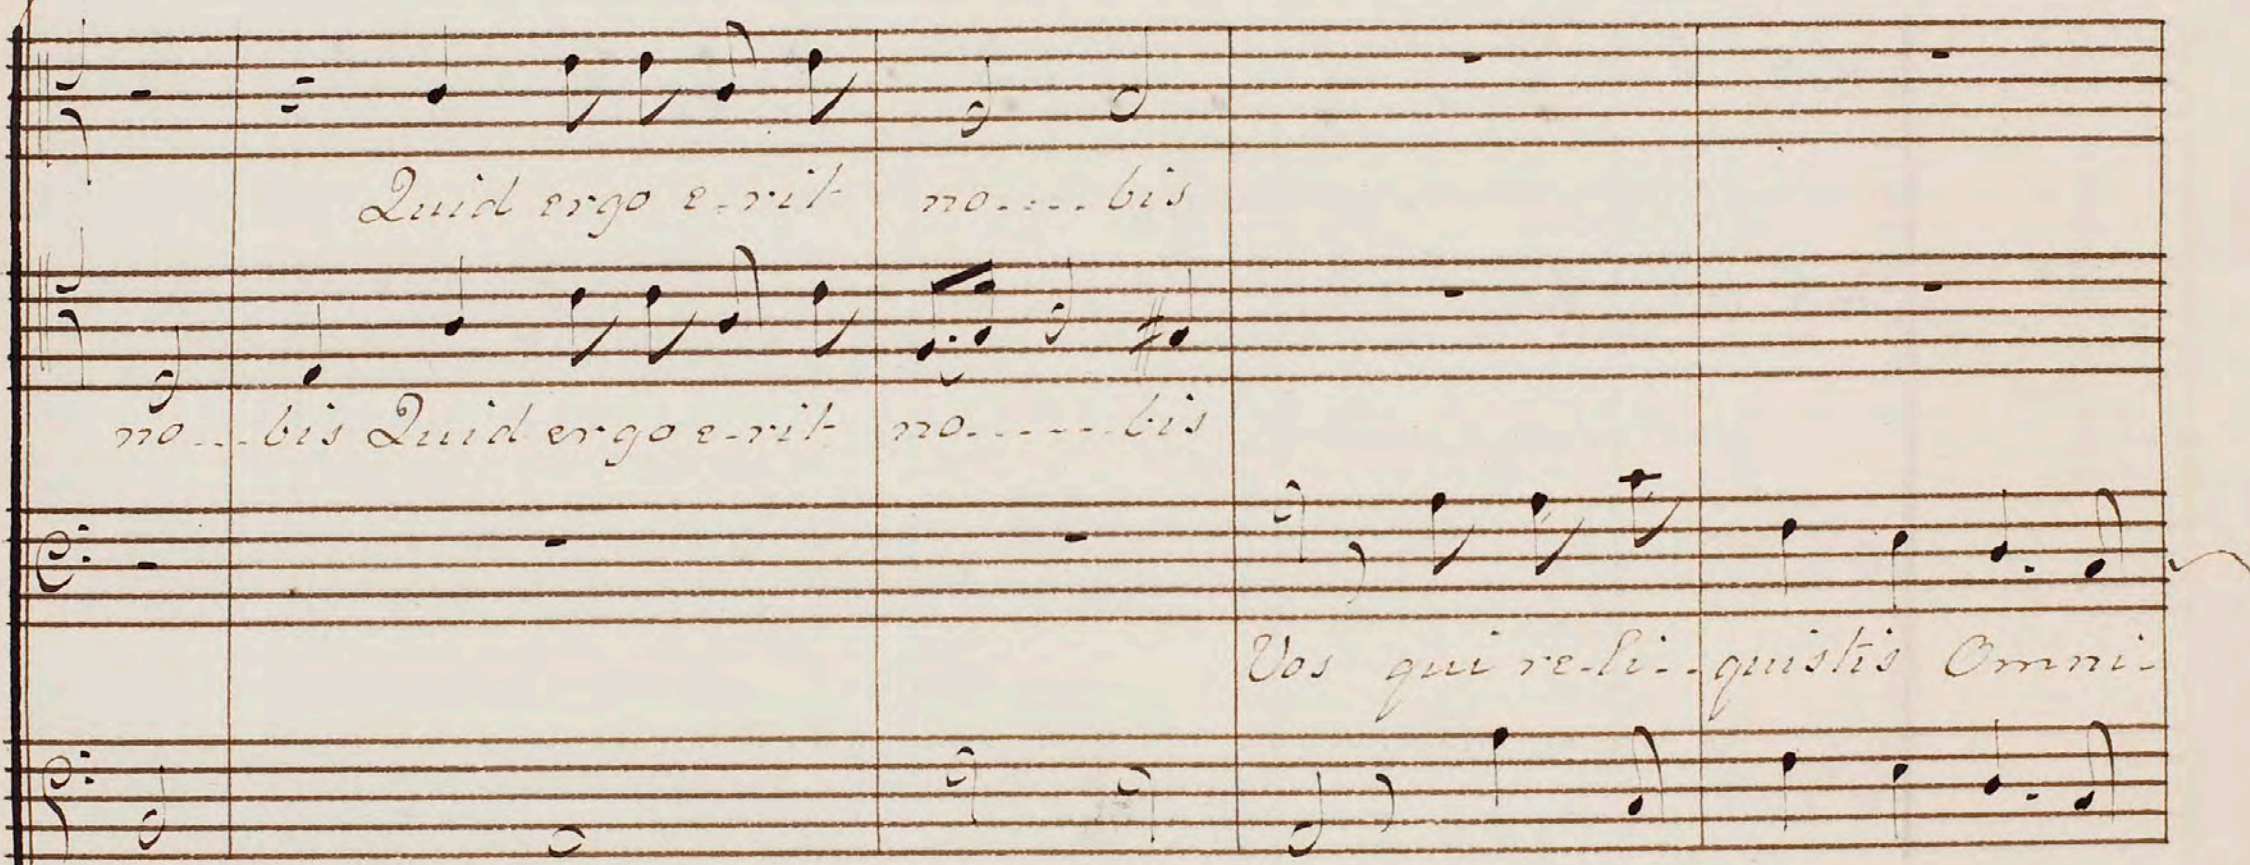 Quid ergo e-rit no.....bis
no...bis Quid ergo e-rit no.......bis
Vos qui re-li..quistis Omni-